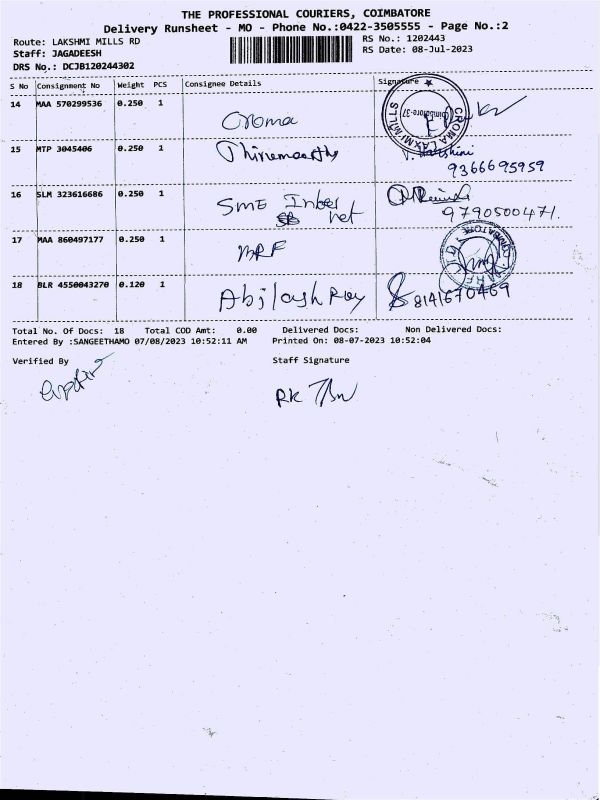 THE PROFESSIONAL COURIERS, COIMBATORE
Delivery Runsheet - MO - Phone No.:0422-3505555 - Page No.:2
Route: LAKSHMI MILLS RD
RS No.: 1202443
Staff: JAGADEESH
RS Date: 08-Jul-2023
DRS No.: DCJB120244302
S No Consignment No Weight PCS Consignee Details Signature
14 MAA 570299536 0.250 1 Croma
CROMA LAXMI MILLS
Coimbatore-37
15 MTP 3045406 0.250 1 Thirumoorthy
9366695959
16 SLM 323616686 0.250 1 SME Inter
net
9790500471.
17 MAA 860497177 0.250 1 MRF
18 BLR 4550043270 0.120 1 Abilash Roy 8141670469
Total No. Of Docs: 18 Total COD Amt: 0.00 Delivered Docs: Non Delivered Docs:
Entered By :SANGEETHAMO 07/08/2023 10:52:11 AM Printed On: 08-07-2023 10:52:04
Verified By Staff Signature
RK